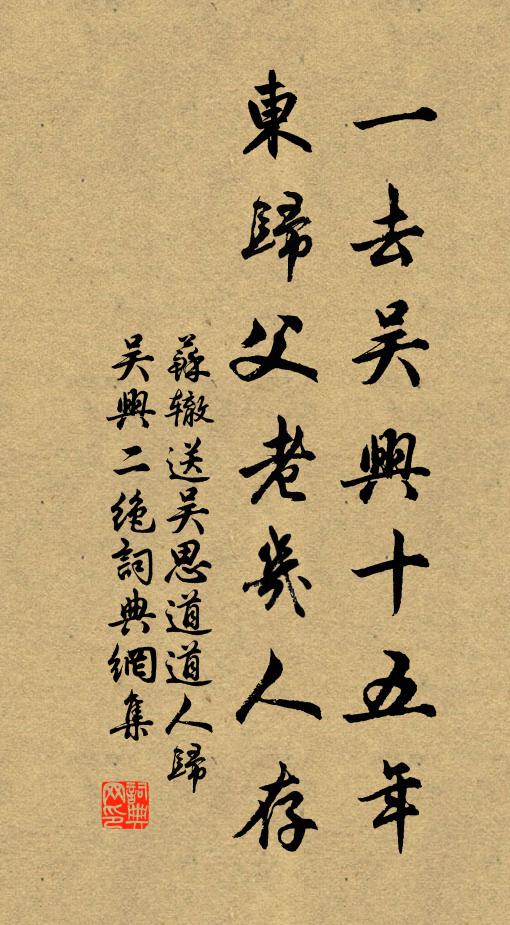 一去吴興十五年
東歸父老幾人存
蘇辙送吴思道道人歸
吴興二絶詞典網集
詞典
网印